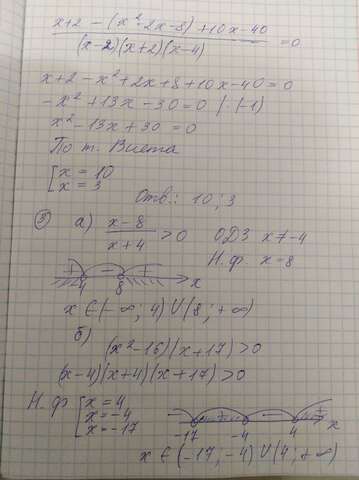 x+2 - (x²-2x-8) +10x-40
(x-2)(x+2)(x-4) =0
x+2-x²+2x+8+10x-40=0
-x²+13x-30=0 |·(-1)
x²-13x+30=0
По т. Виета
[x = 10
x = 3
Отв.: 10; 3
③ а) x-8
x+4 >0 ОДЗ x≠-4
Н.ф x=8
+ - +
4 8 x
x ∈ (-∞; 4) ∪ (8; +∞)
б)
(x²-16)(x+17)>0
(x-4)(x+4)(x+17)>0
Н.ф [x = 4
x = -4
x = -17
- + - +
-17 -4 4 x
x ∈ (-17; -4) ∪ (4; +∞)